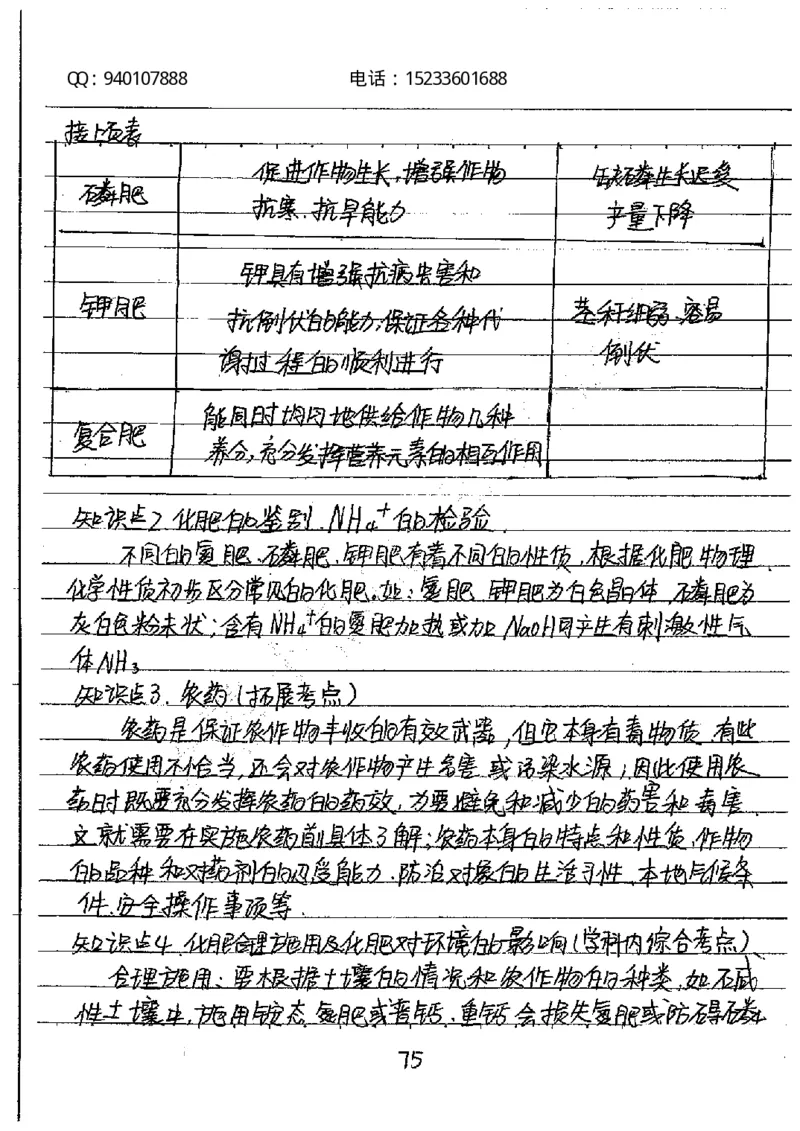 QQ：940107888 电话：15233601688
接上页表
磷肥 促进作物生长，增强作物 缺磷生长迟缓
抗寒、抗旱能力 产量下降
钾具有增强抗病虫害和
钾肥 抗倒伏的能力，保证各种代 茎秆细弱、容易
谢过程的顺利进行 倒伏
能同时均匀地供给作物几种
复合肥 养分，充分发挥营养元素的相互作用
知识点2 化肥的鉴别、NH₄⁺的检验
不同的氮肥、磷肥、钾肥有着不同的性质，根据化肥物理
化学性质初步区分常见的化肥。如：氮肥 钾肥为白色晶体，磷肥为
灰白色粉末状；含有NH₄⁺的氮肥加热或加NaOH可产生有刺激性气
体NH₃
知识点3、农药（拓展考点）
农药是保证农作物丰收的有效武器，但它本身有毒物质，有些
农药使用不恰当，还会对农作物产生危害或污染水源；因此使用农
药时既要充分发挥农药的药效，力要避免和减少的药害和毒害
这就需要在实施农药前具体了解；农药本身的特点和性质，作物
的品种和对药剂的忍受能力、防治对象的生活习性、本地气候条
件、安全操作事项等
知识点4、化肥合理施用及化肥对环境的影响（学科内综合考点）
合理施用：要根据土壤的情况和农作物的种类，如石碱
性土壤中，施用铵态氮肥或普钙、重钙会损失氮肥或防碍磷
75